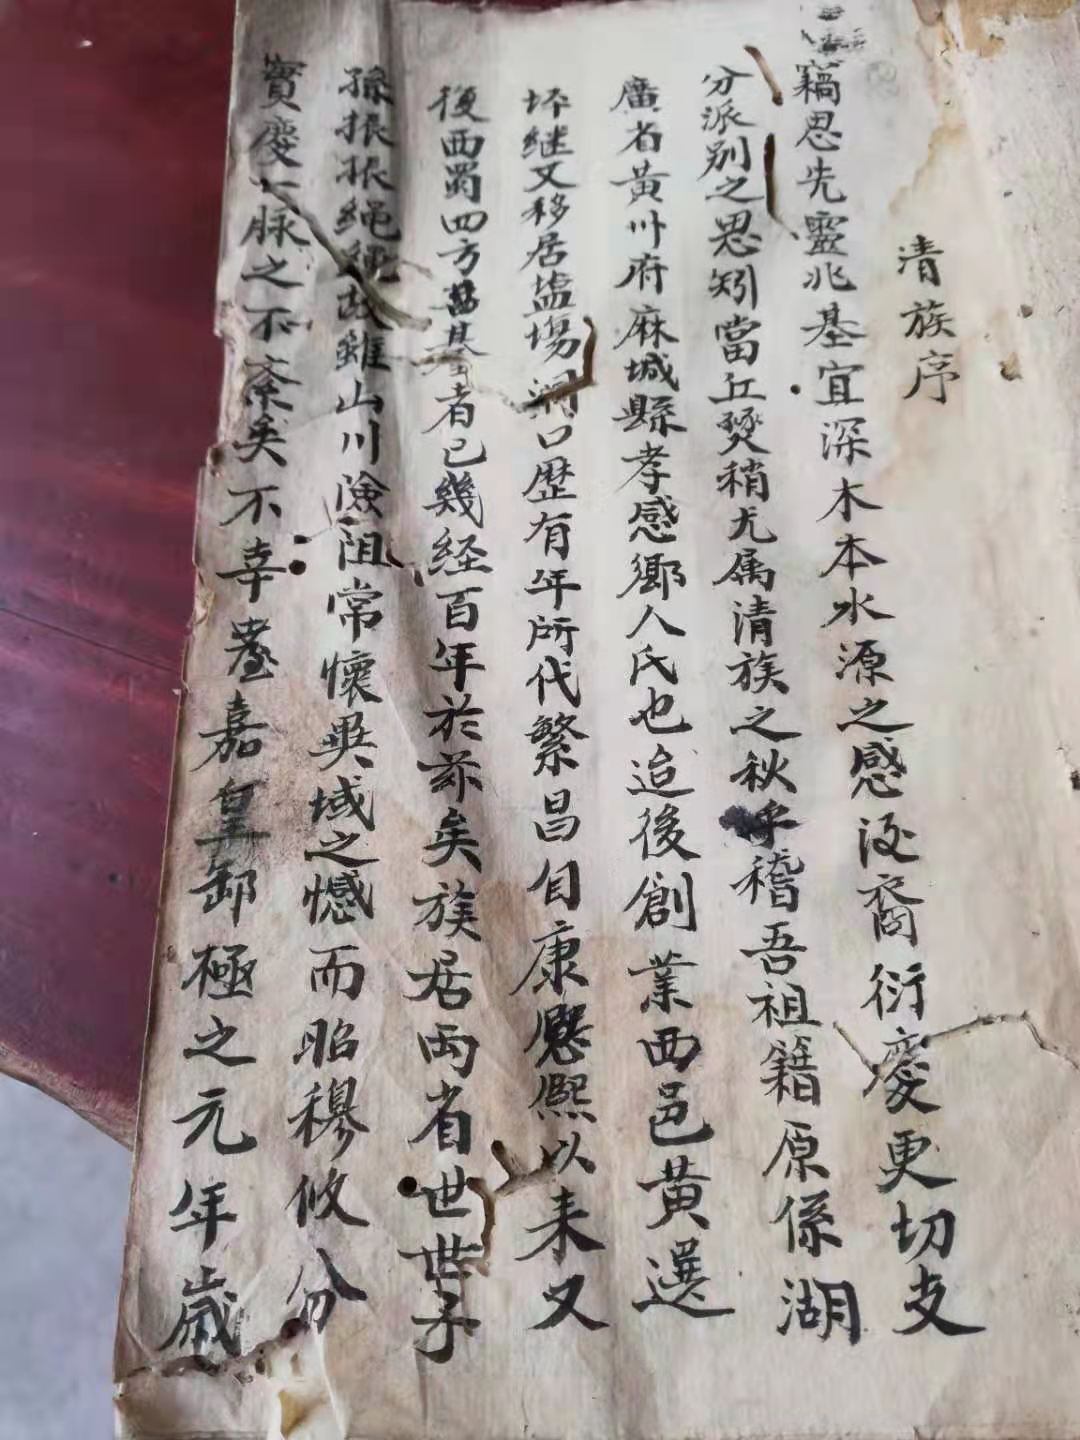 清族序
竊思先靈兆基宜深木本水源之感後裔衍慶更切支
分派別之思矧當丘燹稍尤属清族之秋乎稽吾祖籍原係湖
廣省黃州府麻城縣孝感鄉人氏也迨後創業西邑黃選
坪継又移居塩塲洞口歴有年所代繁昌自康熈以来又
復西蜀四方基者已幾经百年於茲矣族居両省世世子
孫振振繩繩故雖山川險阻常懷異域之憾而昭穆攸分
實慶一脉之不紊矣不幸嘉皇御極之元年歲